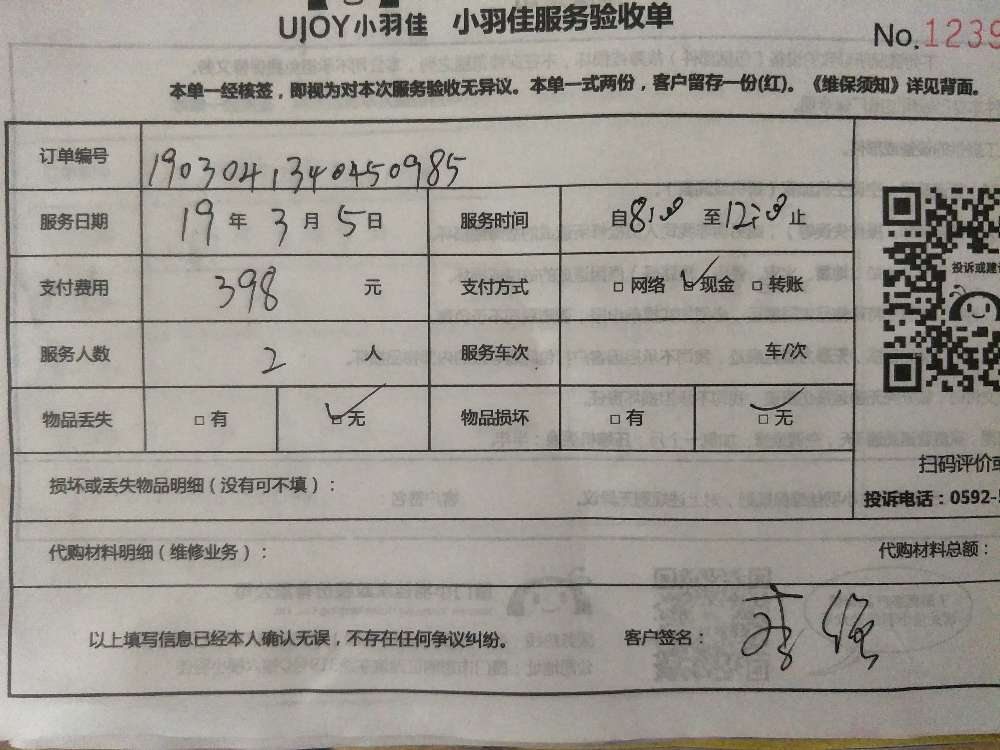 UJOY小羽佳 小羽佳服务验收单
No.1239
本单一经核签，即视为对本次服务验收无异议。本单一式两份，客户留存一份(红)。《维保须知》详见背面。
订单编号 1903041340450985
服务日期 19年3月5日 服务时间 自8:00至12:00止
支付费用 398元 支付方式 □网络 ☑现金 □转账
服务人数 2人 服务车次 车/次
物品丢失 □有 ☑无 物品损坏 □有 ☑无
损坏或丢失物品明细（没有可不填）：
投诉或建议
扫码评价或
投诉电话：0592-
代购材料明细（维修业务）： 代购材料总额：
以上填写信息已经本人确认无误，不存在任何争议纠纷。 客户签名：李强